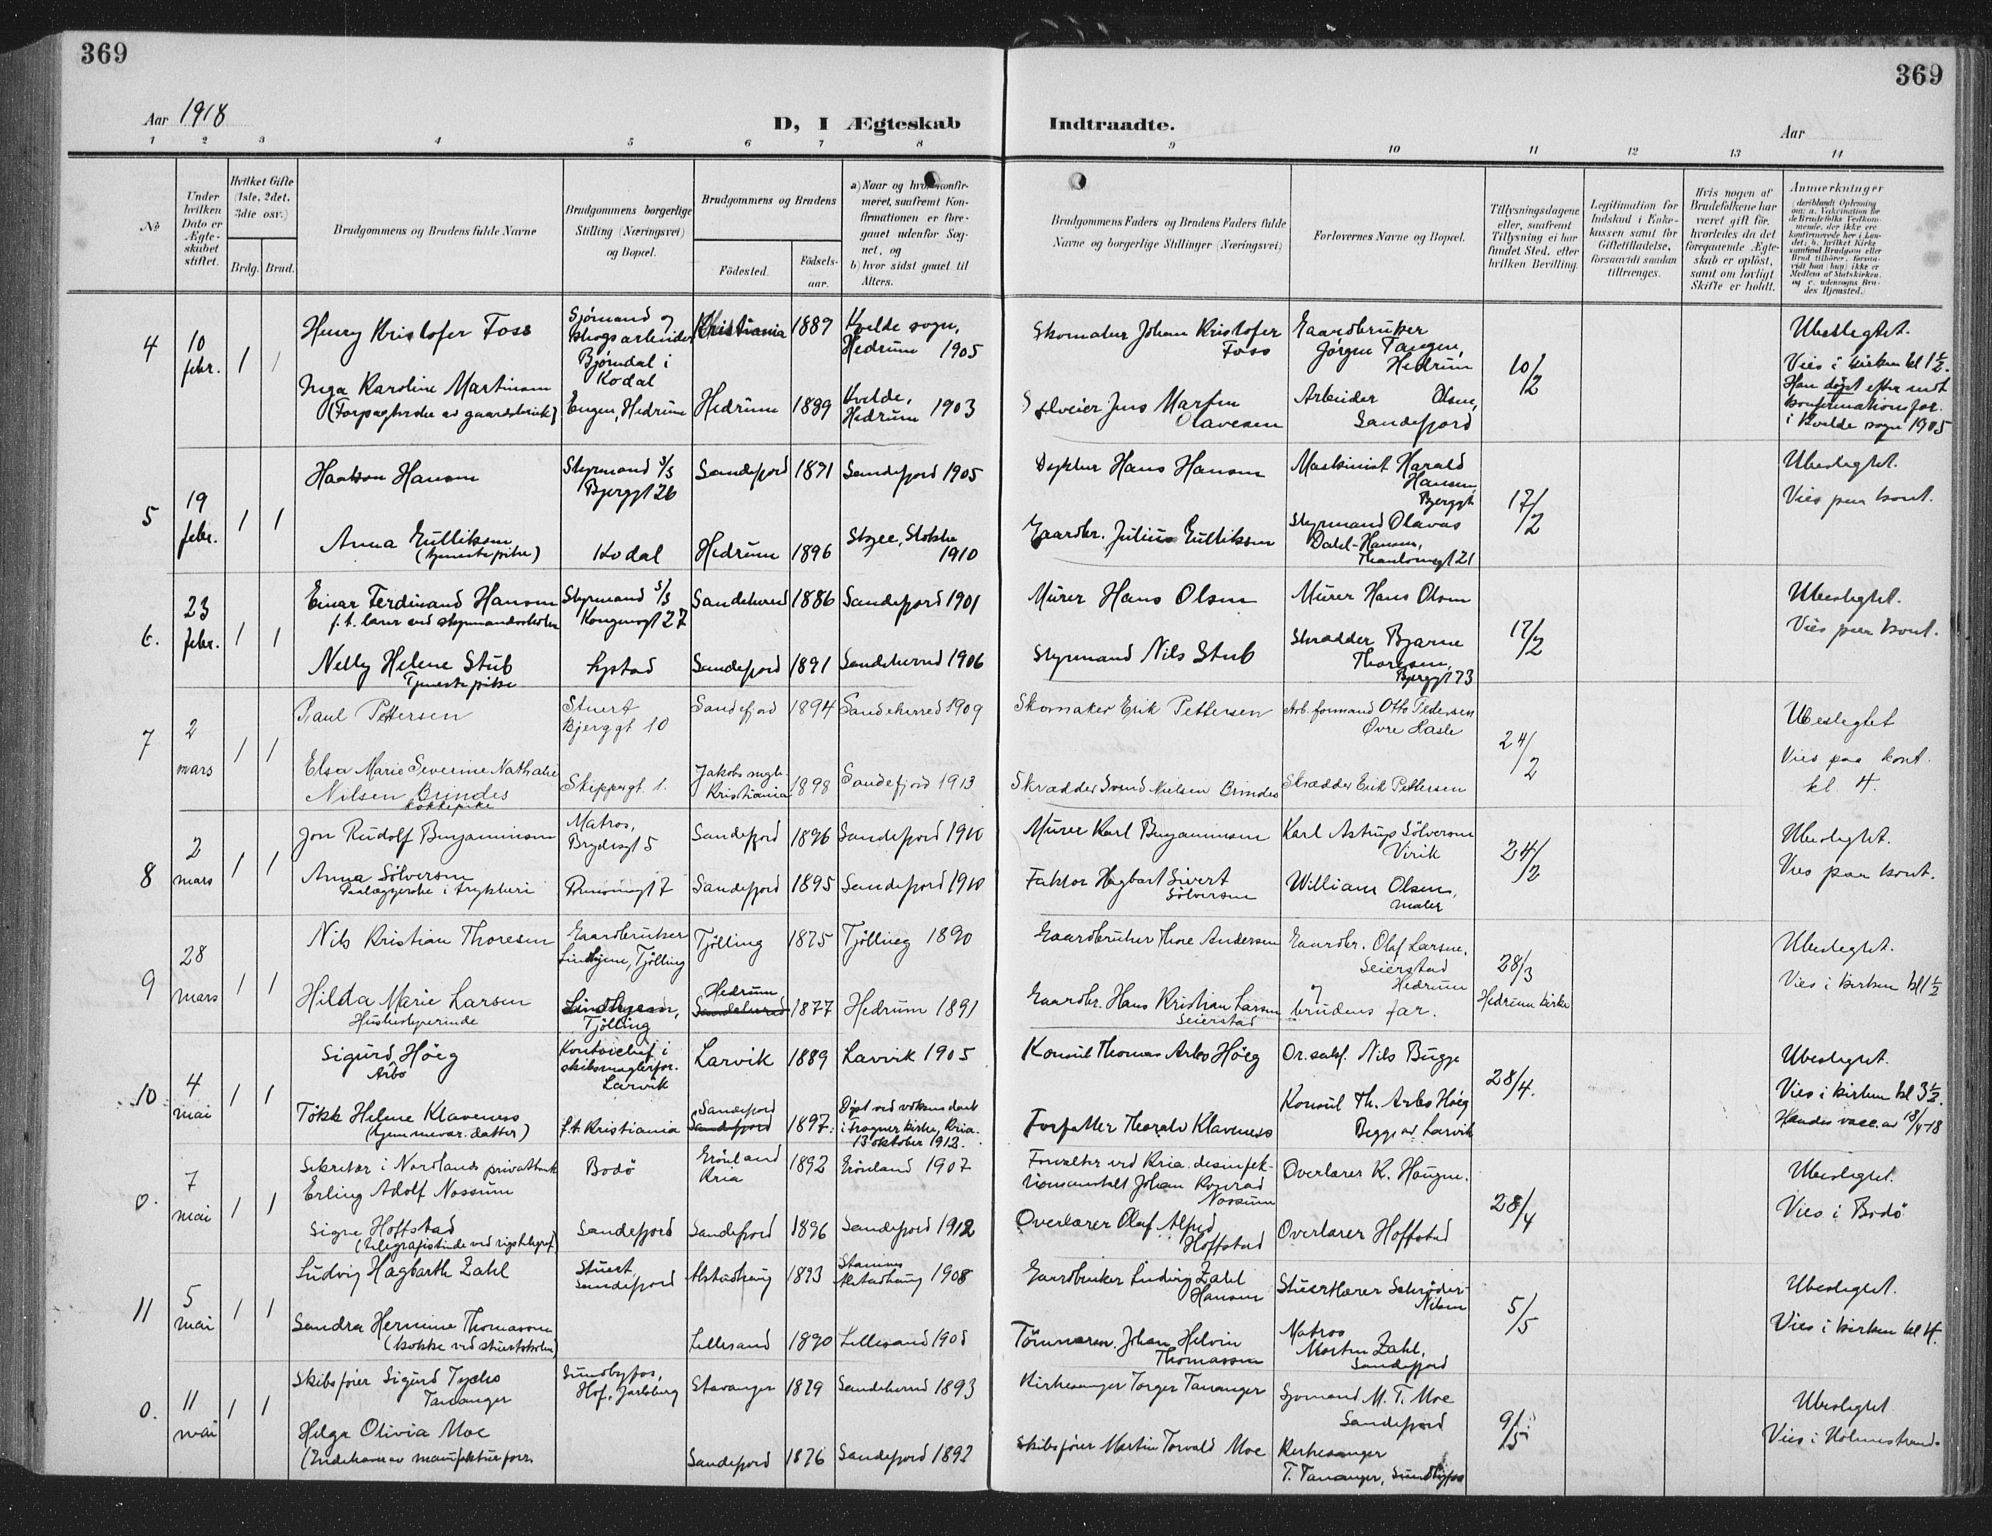 369
369
Aar 1918
D, I Ægteskab Indtraadte.
Aar
1 2 3 4 5 6 7 8 9 10 11 12 13 14
№
Under hvilken Dato er Ægteskabet stiftet.
Hvilket Gifte (1ste, 2det, 3die osv.)
Brdg. Brud.
Brudgommens og Brudens fulde Navne
Brudgommens borgerlige Stilling (Næringsvei) og Bopæl.
Brudgommens og Brudens
Fødested.
Fødselsaar.
a) Naar og hvor konfirmeret, saafremt Konfirmationen er foregaaet udenfor Sognet, og
b) hvor sidst gaaet til Alters.
Brudgommens Faders og Brudens Faders fulde Navne og borgerlige Stillinger (Næringsvei)
Forlovernes Navne og Bopæl.
Tillysningsdagene eller, saafremt Tillysning ei har fundet Sted, efter hvilken Bevilling.
Legitimation for Indskud i Enkekassen samt for Giftetilladelse, forsaavidt saadan tiltrænges.
Hvis nogen af Brudefolkene har været gift før, hvorledes da det foregaaende Ægteskab er opløst, samt om lovligt Skifte er holdt.
Anmerkninger
4
10 febr.
1 1
Henry Kristofer Foss
Sjømand og skogsarbeider Bjørndal i Kodal
Kristiania 1889
Kvelde sogn, Hedrum 1905
Skomaker Johan Kristofer Foss
Gaardbruker Jørgen Tangen, Hedrum
10/2
Ubeslegtet.
Vies i kirken kl 1½.
Han døpt efter
konfirmationsfor.
i Kvelde sogn 1905
Inga Karoline Martinsen
Engen, Hedrum
Hedrum 1889
Kvelde, Hedrum 1903
Selveier Jens Martin Olavesen
Arbeider Olsen, Sandefjord
5
19 febr.
1 1
Haakon Hansen
Styrmand S/S Bjerggt 26
Sandefjord 1891
Sandefjord 1905
Hans Hansen
Maskinist Harald Hansen, Bjerggt.
17/2
Ubeslegtet.
Vies paa kont.
Anna Gulliksen
(tjenestepike)
Kodal
Hedrum 1896
Stokke 1910
Gaardbr. Julius Gulliksen
Styrmand Olavus Dahl-Hansen,
6.
23 febr.
1 1
Einar Ferdinand Hansen
f.t. lærer ved styrmandsskolen
Styrmand S/S Kongensgt 27
Sandeherred 1886
Sandefjord 1901
Murer Hans Olsen
Murer Hans Olsen
17/2
Ubeslegtet.
Vies paa kont.
Nelly Helene Stub
Tjenestepike
Nystad
Sandefjord 1891
Sandeherred 1906
Styrmand Nils Stub
Skrædder Bjarne Thoresen, Bjerggt 73
7
2 mars
1 1
Paul Pettersen
Stuert Bjerggt 10
Sandefjord 1894
Sandeherred 1909
Skomaker Erik Pettersen
Arb. formand Otto Pedersen Øvre Hasle
24/2
Ubeslegtet
Vies paa kont.
kl. 4.
Elsa Marie Severine Nathalie
Nilsen Brindes
kokkepike
Skippergt. 1.
Jakobs mgh. Kristiania 1898
Sandefjord 1913
Skrædder Svend Nielsen Brindes
Skrædder Erik Pettersen
8
2 mars
1 1
Jon Rudolf Benjaminsen
Matros, Brydesgt 5
Sandefjord 1896
Sandefjord 1910
Murer Karl Benjaminsen
Karl Astrup Sölversen Virik
24/2
Ubeslegtet.
Vies paa kont.
Anna Sölversen
Paalæggerske i trykkeri
Sandefjord 1895
Sandefjord 1910
Faktor Hagbart Sivert Sölversen
William Olsen, maler
9
28 mars
1 1
Nils Kristian Thoresen
Gaardbruker Lindhjem, Tjölling
Tjölling 1875
Tjölling 1890
Gaardbruker Thore Andersen
Gaardbr. Olaf Larsen, Seierstad Hedrum
28/3
Hedrum kirke
Ubeslegtet.
Vies i kirken kl 1½
Hilda Marie Larsen
Husbestyrerinde
Lindhjem, Tjölling
Hedrum
Sandeherred 1877
Hedrum 1891
Gaardbr. Hans Kristian Larsen Seierstad
og brudens far.
10
4 mai
1 1
Sigurd Höeg
Arbo
Kontorchef i skibsmæglerfor. Larvik
Larvik 1889
Larvik 1905
Konsul Thomas Arbo Höeg
Or.sakf. Nils Bugge
28/4.
Ubeslegtet.
Vies i kirken kl 3½.
Hendes vacc.at 18/4-18
Tökk Helene Klaveness
(hjemmevær. datter)
f.t. Kristiania
Sandefjord
Sandefjord 1897.
Døpt ved voksendaab i Frogner kirke, Kria. 13 oktober 1912.
Forfatter Thoralv Klaveness
Konsul Th. Arbo Höeg
Begge av Larvik
0.
7 mai
1 1
Sekretær i Nordlands privatbank
Erling Adolf Nossum
Bodö
Grönland Kria 1892
Grönland 1907
Forvalter ved Kria. desinfektionsanstalt Johan Konrad Nossum
Overlærer K. Haugne.
28/4
Ubeslegtet.
Vies i Bodö
Signe Hoffstad
(telegrafistinde ved rigstelegraf.)
Sandefjord
Sandefjord 1896
Sandefjord 1912
Overlærer Olaf Alfred Hoffstad
Overlærer Hoffstad
11
5 mai
1 1
Ludvig Hagbarth Zahl
Stuert Sandefjord
Alstadhaug 1893
Stamnes Alstadhaug 1908
Gaardbruker Ludvig Zahl Hansen
Stuertlærer Schrøder-Nilsen
5/5
Ubeslegtet.
Vies i kirken kl 4.
Sandra Hermine Thomassen
(kokke ved stuertskolen)
Lillesand 1890
Lillesand 1905
Johan Helvin Thomassen
Matros Morten Zahl, Sandefjord
0.
11 mai
1 1
Skibsfører Sigurd Tycho
Tananger
Sundbyfos, Hof, Jarlsberg
Stavanger 1879
Sandeherred 1893
Kirkesanger Torger Tananger
Sjømand M. T. Moe Sandefjord
9/5
Ubeslegtet
Vies i Holmestrand.
Helga Olivia Moe
(Indehaver av manufakturforr.
Sandefjord 1876
Sandefjord 1892
Skibsfører Martin Torvald Moe
Kirkesanger
T. Tananger, Sundbyfos